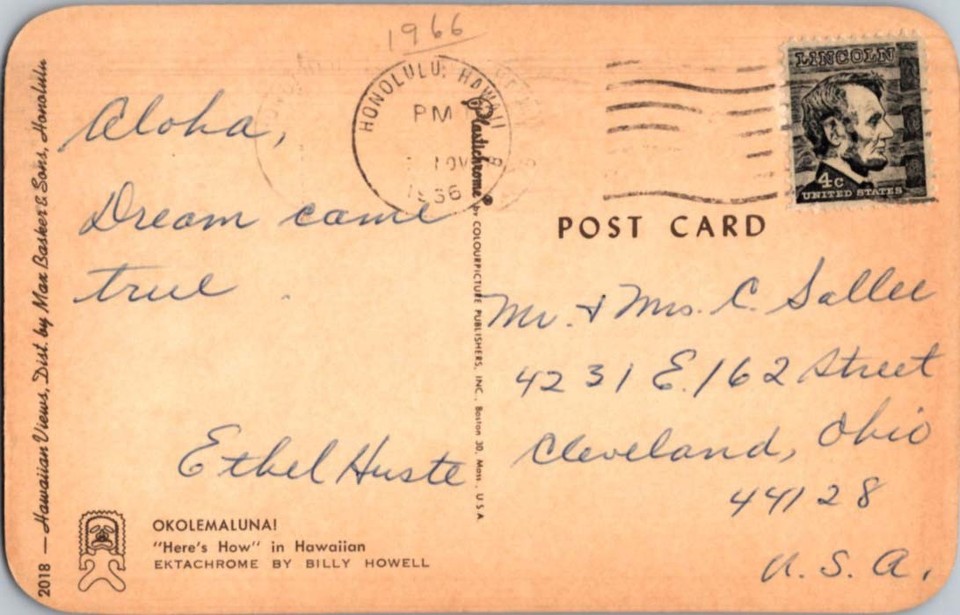 1966
HONOLULU, HAWAII
PM
1966
LINCOLN
4c
UNITED STATES
Aloha,
Dream came
true.
Ethel Huste
OKOLEMALUNA!
"Here's How" in Hawaiian
EKTACHROME BY BILLY HOWELL
2018 — Hawaiian Views, Dist. by Max Basker & Sons, Honolulu
Plastichrome® by COLOURPICTURE PUBLISHERS, INC., Boston 30, Mass., U.S.A
POST CARD
Mr. & Mrs. C. Sallee
4231 E. 162 Street
Cleveland, Ohio
44128
U.S.A.